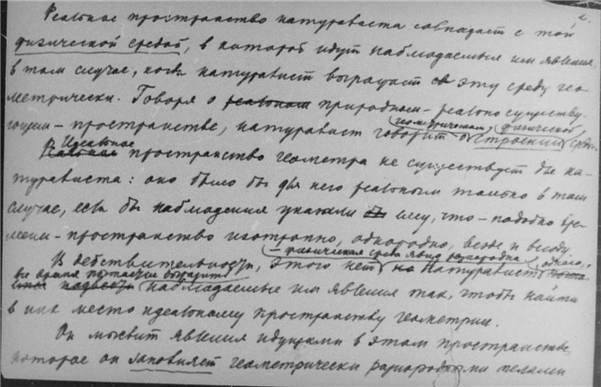 Реальное пространство натуралиста совпадает с той
физической средой, в которой идут наблюдаемые им явления
в том случае, когда натуралист выражает эту среду гео-
метрически. Говоря о реальном природном - реально существу-
геометрическом, физической
ющем - пространстве, натуралист говорит о строении среды.
Идеальное
пространство геометра не существует для на-
туралиста: оно было бы для него реальным только в том
случае, если бы наблюдения указали ему, что - подобно вре-
мени - пространство изотропно, однородно, везде и всюду
- физическая среда явно разнородна
В действительности, этого нет Натуралист
во время пытается выразить
наблюдаемые им явления так, чтобы найти
в них место идеальному пространству геометрии.
Он мыслит явления идущими в этом пространстве,
которое он заполняет геометрически разнородными телами